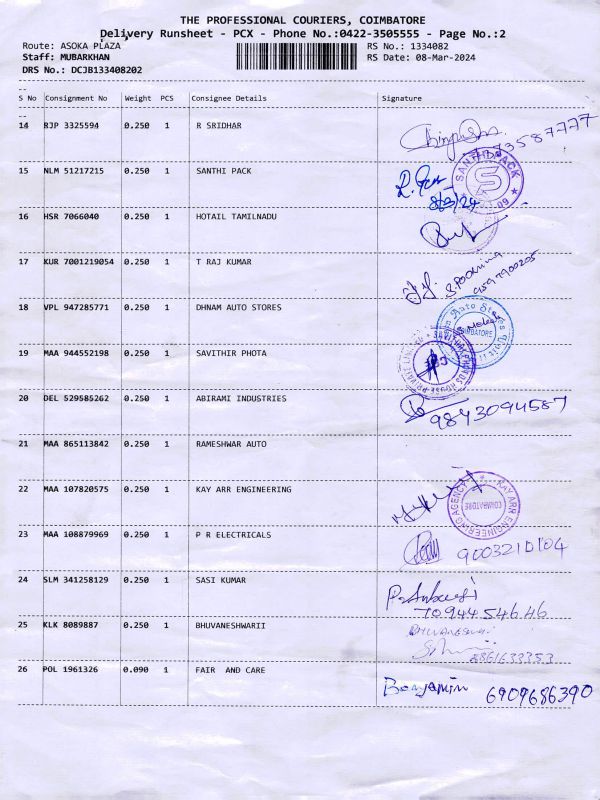 THE PROFESSIONAL COURIERS, COIMBATORE
Delivery Runsheet - PCX - Phone No.:0422-3505555 - Page No.:2
Route: ASOKA PLAZA RS No.: 1334082
Staff: MUBARKHAN RS Date: 08-Mar-2024
DRS No.: DCJB133408202
S No Consignment No Weight PCS Consignee Details Signature
14 RJP 3325594 0.250 1 R SRIDHAR
15 NLM 51217215 0.250 1 SANTHI PACK
SANTHI PACK
8/3/24
16 HSR 7066040 0.250 1 HOTAIL TAMILNADU
17 KUR 7001219054 0.250 1 T RAJ KUMAR
18 VPL 947285771 0.250 1 DHNAM AUTO STORES
Auto Stores
COIMBATORE
19 MAA 944552198 0.250 1 SAVITHIR PHOTA
20 DEL 529585262 0.250 1 ABIRAMI INDUSTRIES
9843094587
21 MAA 865113842 0.250 1 RAMESHWAR AUTO
22 MAA 107820575 0.250 1 KAY ARR ENGINEERING
KAY ARR ENGINEERING AGENCY
COIMBATORE
23 MAA 108879969 0.250 1 P R ELECTRICALS
9003210104
24 SLM 341258129 0.250 1 SASI KUMAR
7094454646
25 KLK 8089887 0.250 1 BHUVANESHWARII
8861633353
26 POL 1961326 0.090 1 FAIR AND CARE
Benjamin 6909686390